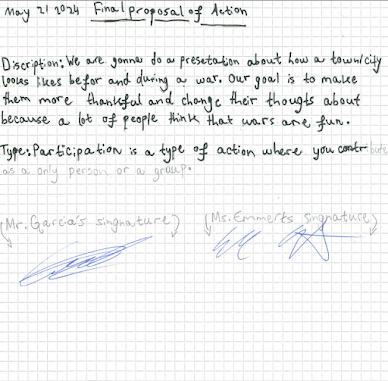 May 21 2024 Final proposal of Action
Discription: We are gonna do a presetation about how a town/city
looks likes befor and during a war. Our goal is to make
them more thankful and change their thougts about
because a lot of people think that wars are fun.
Type: Participation is a type of action where you contribute
as a only person or a group.
(Mr. Garcia's singnature) (Ms. Emmerts singnature)